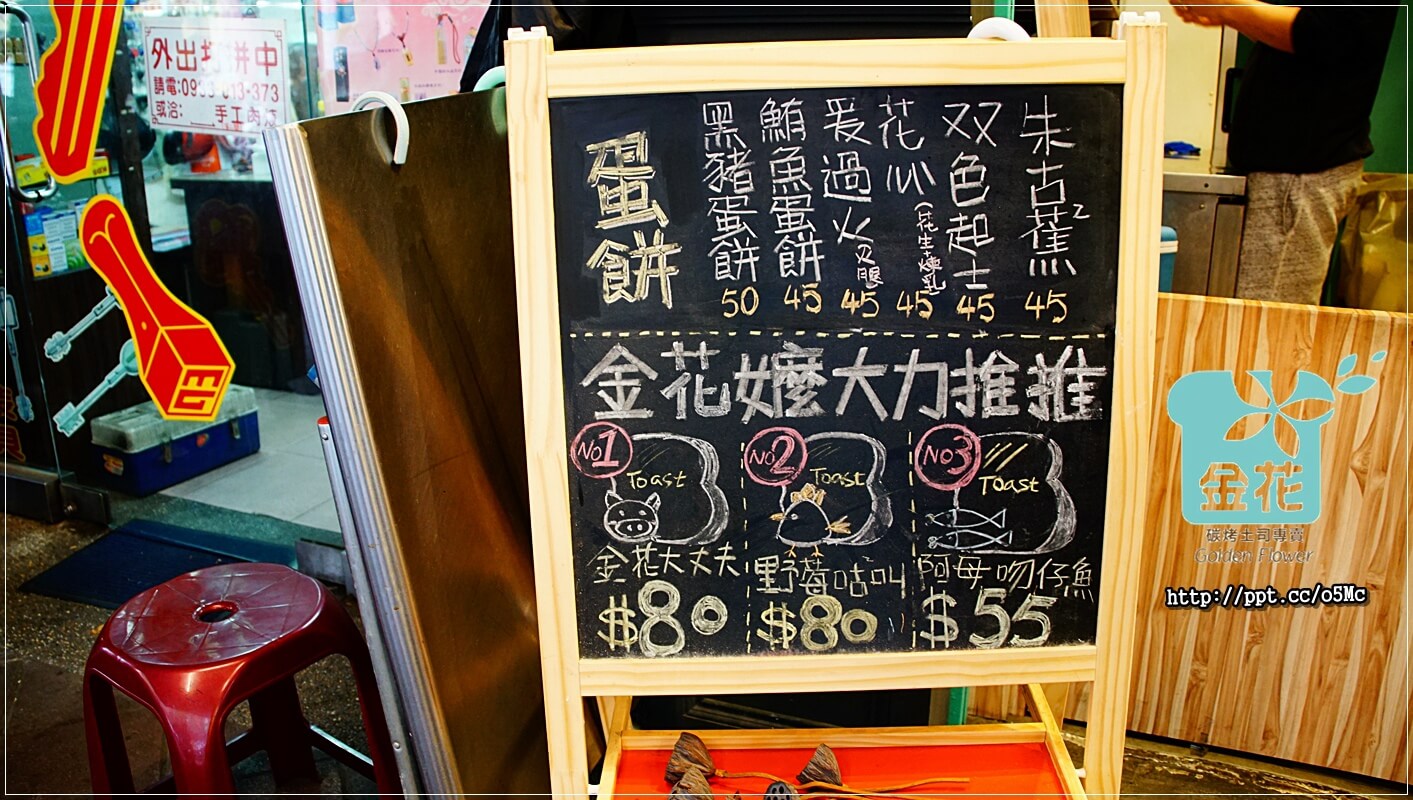 外出 拼中
請電:09 -373
或洽: 手工
蛋餅
黑豬蛋餅 50
鮪魚蛋餅 45
爰過火(叉腿 45
花心(花生煉乳 45
双色起士 45
朱古蕉2 45
金花嬤大力推推
No1
Toast
金花大丈夫
$80
No2
Toast
野莓咕叫
$80
No3
Toast
阿母吻仔魚
$55
金花
碳烤土司專賣
Golden Flower
http://ppt.cc/o5Mc